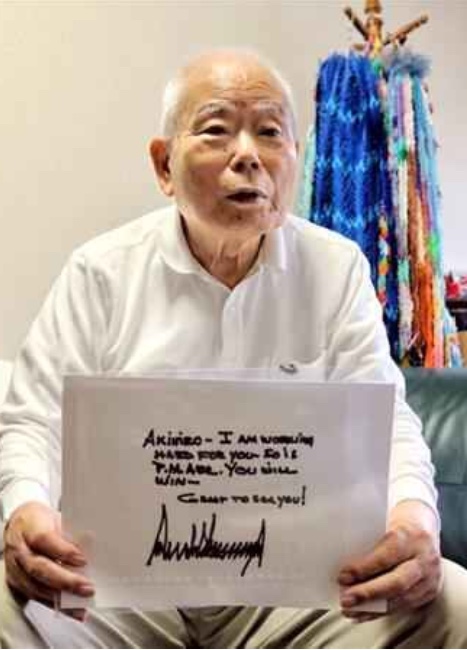 AKIHIRO - I AM WORKING
HARD FOR YOU. SO IS
P.M. ABE. YOU WILL
WIN -
GREAT TO SEE YOU!